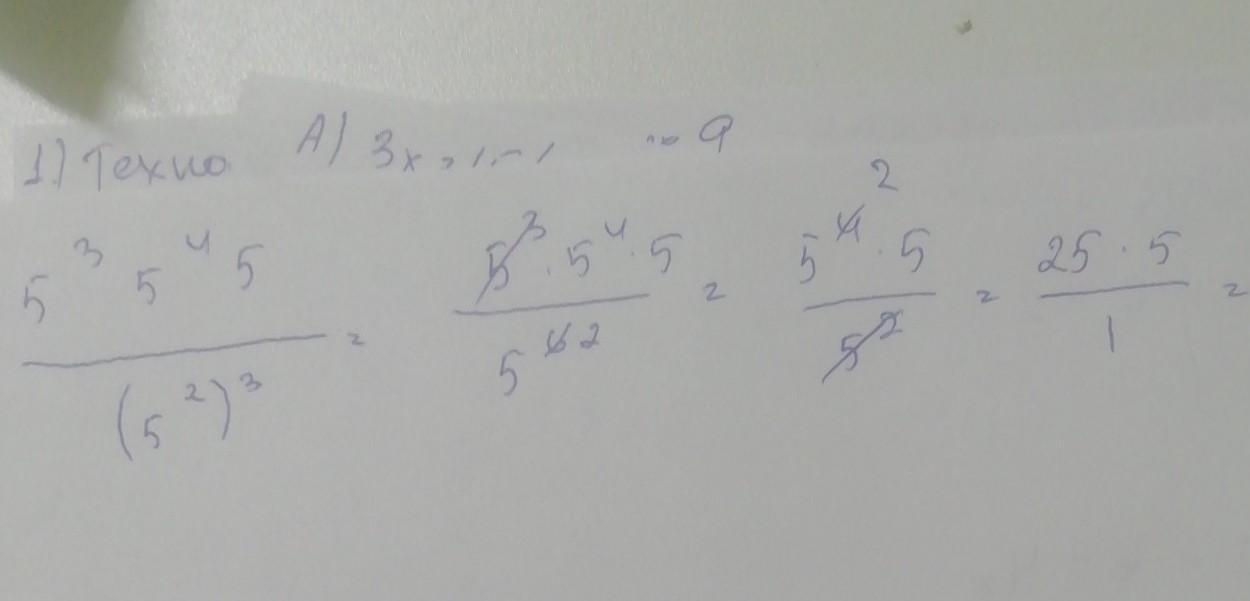 1.) Техно A) 3x
5³ 5⁴ 5 / (5²)³ = 5³ · 5⁴ · 5 / 5⁶ ² = 5⁴ ² · 5 / 5² = 25 · 5 / 1 =